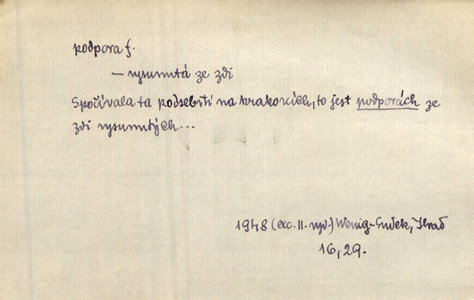 podpora f.
— vysunutá ze zdi
Spočívala ta podsebití na krakorcích, to jest podporách ze
zdi vysunutých...
1948 (exc. II. vyd.) Wenig-Sudek, Hrad
16, 29.